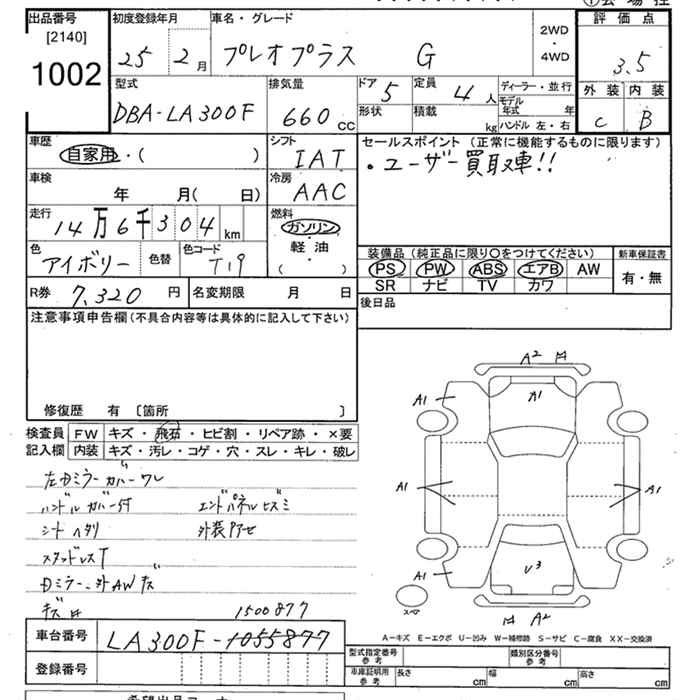 出品番号 初度登録年月 車名・グレード 2WD・4WD 評価点
[2140] 1002 25 2月 プレオプラス G 3.5
型式 排気量 ドア 5 定員 4人 ディーラー・並行 外装 内装
DBA-LA300F 660cc 形状 積載 kg モデル年式 年 ハンドル 左・右 C B
車歴 自家用・( ) シフト IAT セールスポイント(正常に機能するものに限ります)
・ユーザー買取車!!
車検 年 月( 日) 冷房 AAC
走行 14万6千304km 燃料 ガソリン・軽油・( )
色 アイボリー 色替 色コード T19
装備品(純正品に限り○をつけてください) 新車保証書
PS PW ABS エアB AW 有・無
SR ナビ TV カワ
R券 7,320円 名変期限 月 日 後日品
注意事項申告欄(不具合内容等は具体的に記入して下さい)
修復歴 有 〔箇所 〕
検査員 FW キズ・飛石・ヒビ割・リペア跡・×要
記入欄 内装 キズ・汚レ・コゲ・穴・スレ・キレ・破レ
左Dミラーカバーワレ
ハンドルカバー付 エンドパネルヒズミ
シートヘタリ 外装アセ
スタッドレスT
Dミラー・外AWキズ
1500877
A2
A1 A1
A1 A1
A1 U3
スペア A2
A-キズ E-エクボ U-凹み W-補修跡 S-サビ C-腐食 XX-交換済
車台番号 LA300F-1055877
登録番号
型式指定番号 参考 類別区分番号 参考
車庫証明用 参考 長さ cm 幅 cm 高さ cm